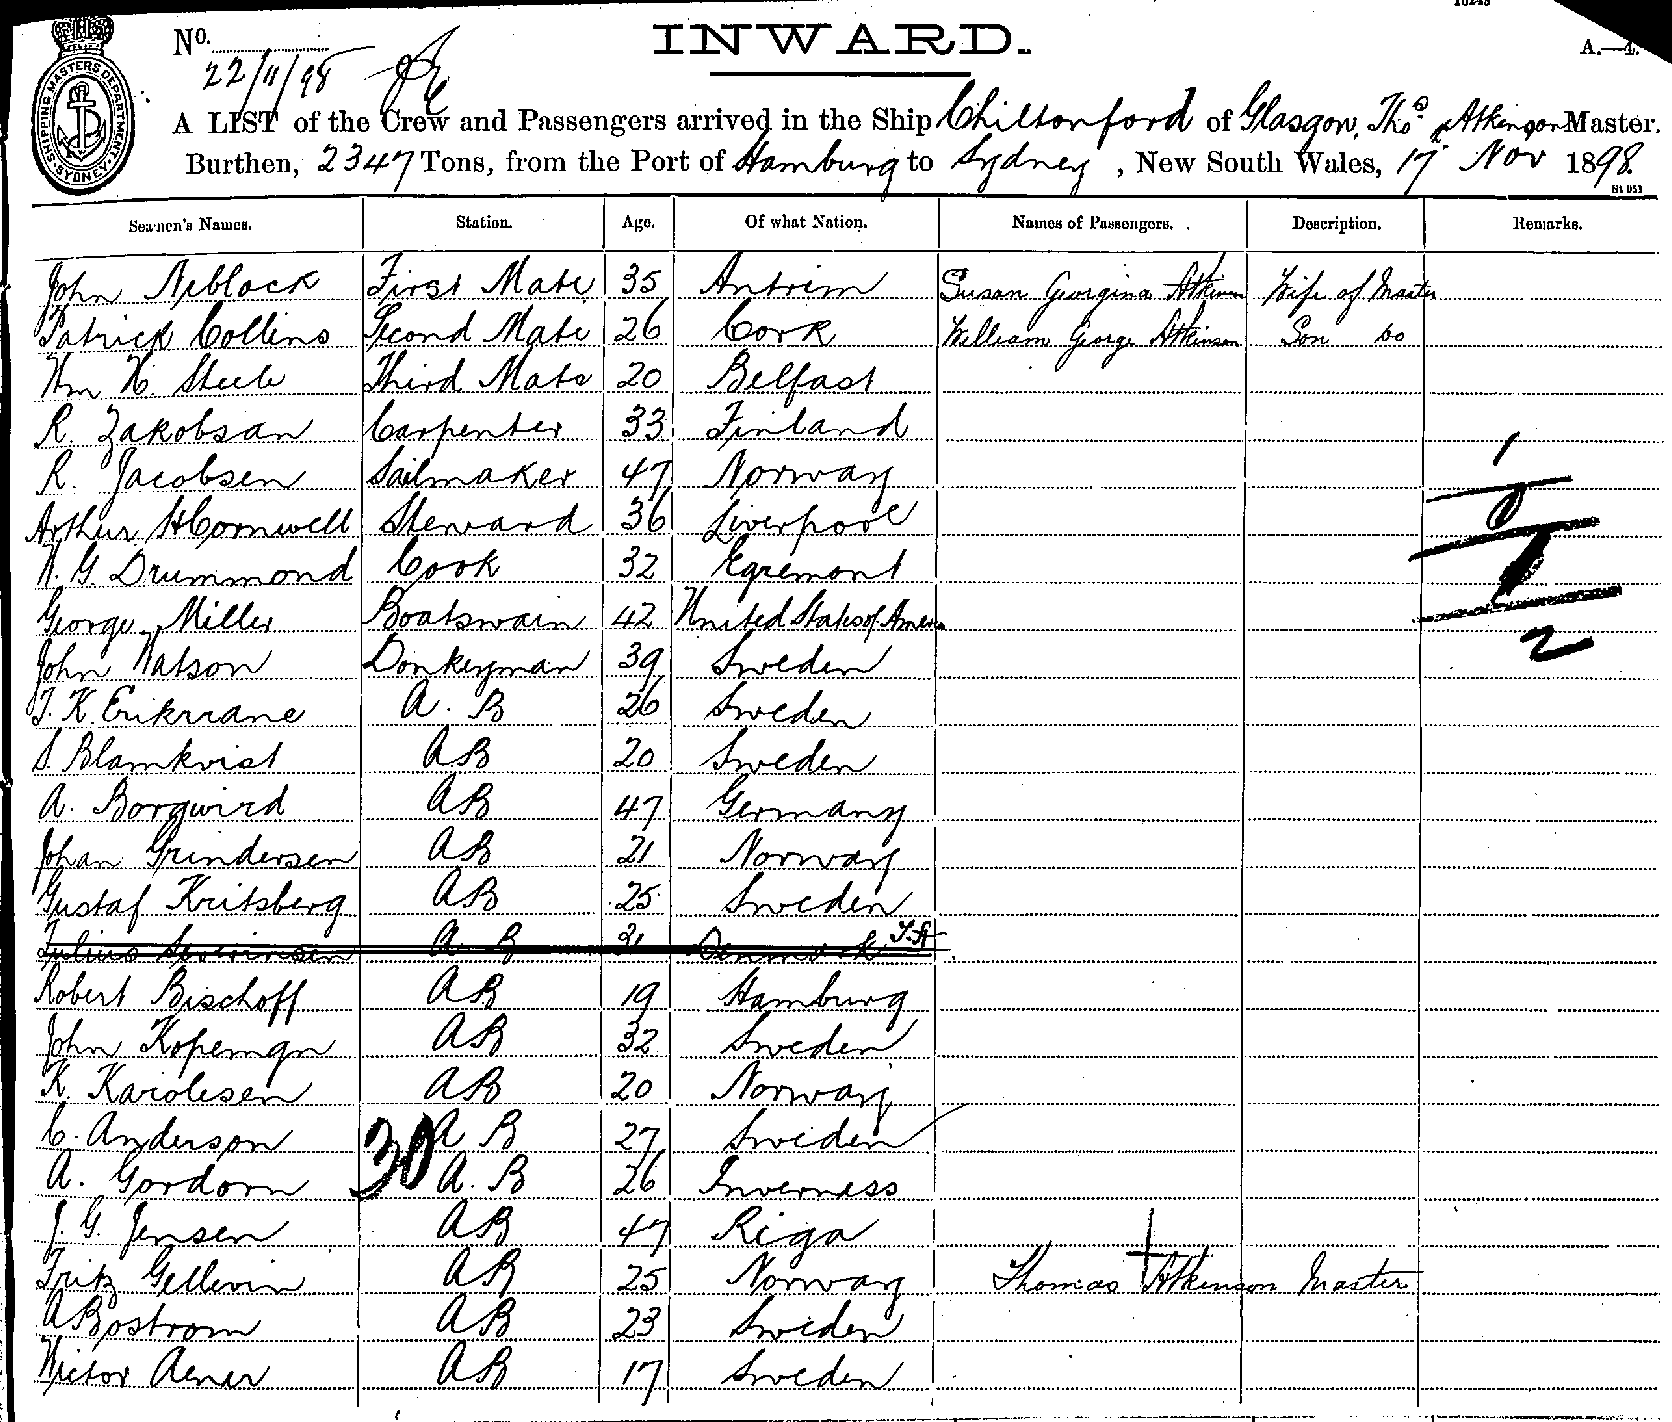 INWARD.
A.—4.
No.
22/11/98
SHIPPING MASTERS DEPARTMENT SYDNEY
A LIST of the Crew and Passengers arrived in the Ship Chiltonford of Glasgow, Thos Atkinson Master.
Burthen, 2347 Tons, from the Port of Hamburg to Sydney, New South Wales, 17 Nov 1898.
Seamen's Names. Station. Age. Of what Nation. Names of Passengers. Description. Remarks.
John Niblock First Mate 35 Antrim Susan Georgina Atkinson Wife of Master
Patrick Collins Second Mate 26 Cork William George Atkinson Son Do
Wm H. Steele Third Mate 20 Belfast
R. Zakobsan Carpenter 33 Finland
R. Jacobsen Sailmaker 47 Norway
1
Arthur H Cornwell Steward 36 Liverpool
W. G. Drummond Cook 32 Egremont
George Miller Boatswain 42 United States of America
2
John Watson Donkeyman 39 Sweden
T. K. Erikrrane A. B 26 Sweden
S. Blamkvist AB 20 Sweden
A. Borgwird AB 47 Germany
Johan Grindersen AB 21 Norway
Gustaf Kritsberg AB 25 Sweden
Julius Severinsen A. B 31 Denmark T.A
Robert Bischoff AB 19 Hamburg
John Kopemgn AB 32 Sweden
K. Karolesen AB 20 Norway
C. Anderson A B 27 Sweden
30
A. Gordorn A. B 26 Inverness
J. G. Jensen AB 47 Riga
Fritz Gellevin AB 25 Norway Thomas Atkinson Master
A Bostrom AB 23 Sweden
Victor Aener AB 17 Sweden